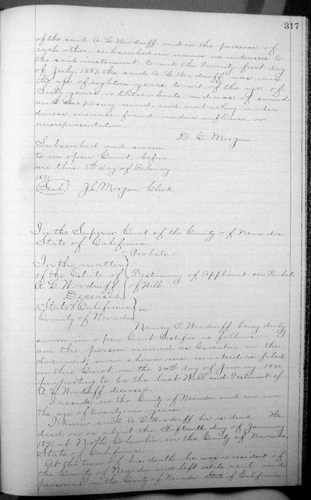 317
of the said A. D. Woodruff and in the presence of
each other, subscribed our names as witnesses to
the said instrument to wit the Twenty first day
of July 1887 the said A. D. Woodruff was over
the age of eighteen years, to wit of the age of
Sixty years or thereabouts and was of sound
and disposing mind and not acting under
duress menace fraud undue influence or
misrepresentation.
D. E. Morgan
Subscribed and sworn
to in open Court before
me this 7th day of February
1891
(Seal) J. L. Morgan Clerk
In the Superior Court of the County of Nevada
State of California
Probate
In the matter
of the Estate of Testimony of Applicant on Probate
A. D. Woodruff of Will
Deceased
State of California
County of Nevada ss
Nancy P. Woodruff being duly
sworn in open Court testifies as follows: I
am the person named as Executrix in the
document now shown me, marked as filed
in this Court on the 24th day of January 1891
purporting to be the last Will and Testament of
A. D. Woodruff, deceased.
I reside in the County of Nevada and am over
the age of twenty one years.
I knew said A. D. Woodruff he is dead. He
died on or about the Fifteenth day of January
1891 at North Columbia in the County of Nevada
State of California.
At the time of his death he was a resident of
the County of Nevada and left estate real and
personal in the County of Nevada State of California